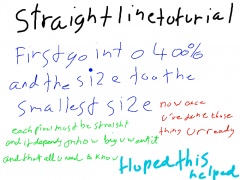 Straight line toturial
First go int o 400%
and the size too the
smallest size
now once
you've done those
thing ur ready
each pixel must be straight
and it depends on how big u want it
and that all u need to know
Hoped this
helped